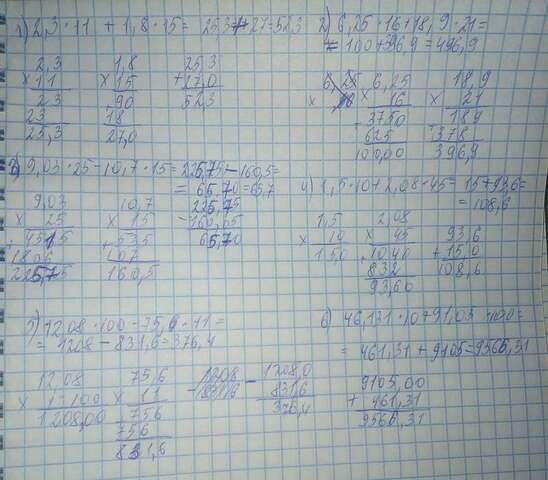 1) 2,3 · 11 + 1,8 · 15 = 25,3 + 27 = 52,3
2,3
× 11
23
23
25,3
1,8
× 15
90
18
27,0
25,3
+ 27,0
52,3
2) 6,25 · 16 + 18,9 · 21 =
= 100 + 396,9 = 496,9
6,25
× 16
3750
625
100,00
18,9
× 21
189
378
396,9
3) 9,03 · 25 - 10,7 · 15 = 225,75 - 160,5 =
9,03
× 25
4515
1806
225,75
10,7
× 15
535
107
160,5
4) 1,5 · 10 + 2,08 · 45 = 15 + 93,6 =
= 108,6
1,5
× 10
15,0
2,08
× 45
1040
832
93,60
93,6
+ 15,0
108,6
5) 12,08 · 100 - 75,6 · 11 =
= 1208 - 831,6 = 376,4
12,08
× 100
1208,00
75,6
× 11
756
756
831,6
1208,0
- 831,6
376,4
= 461,31 + 9105 = 9566,31
9105,00
+ 461,31
9566,31